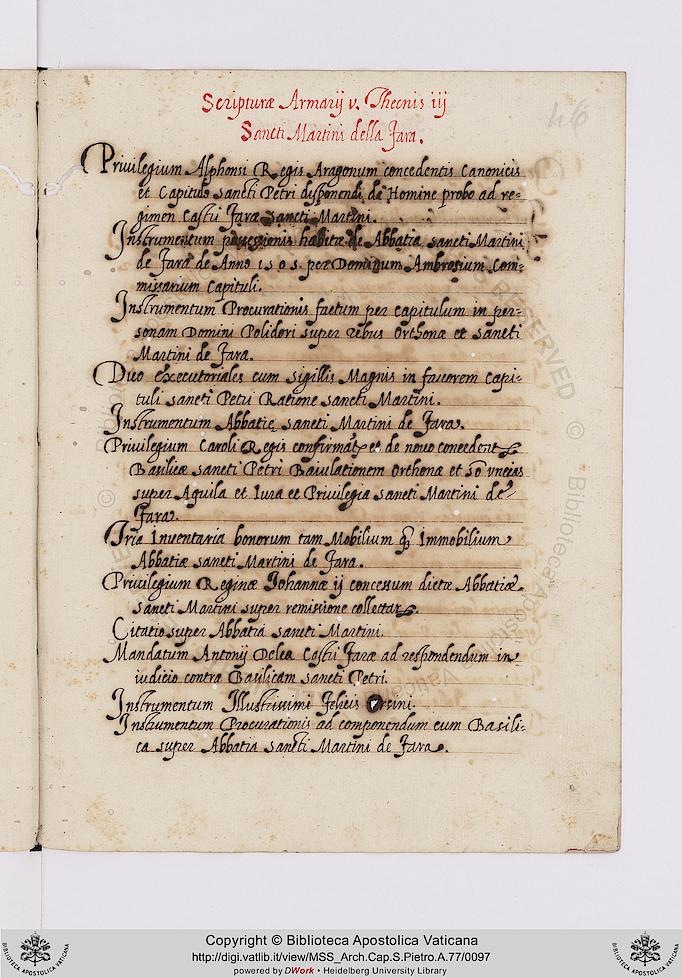 Scripturæ Armarij v. Thecnis iij
Sancti Martini della Fara.
46
Privilegium Alphonsi Regis Aragonum concedentis Canonicis
et Capitulo sancti Petri disponendi de Homine probo ad re=
gimen Castri Faræ sancti Martini.
Instrumentum possessionis habitæ de Abbatia sancti Martini
de Fara de Anno 1505. per Dominum Ambrosium Com=
missarium Capituli.
Instrumentum Procurationis factum per capitulum in per=
sonam Domini Polidori super rebus Orthonæ et sancti
Martini de Fara.
Duo executoriales cum sigillis Magnis in favorem Capi=
tuli sancti Petri Ratione sancti Martini.
Instrumentum Abbatie sancti Martini de Fara.
Privilegium Caroli Regis confirmat et de novo concedent
Basilicæ sancti Petri Baiulationem Orthonæ et vncias
super Aquila et Iura et Privilegia sancti Martini de
Fara.
Tria Inventaria bonorum tam Mobilium q; Immobilium
Abbatiæ sancti Martini de Fara.
Privilegium Reginæ Johannæ ij concessum dictæ Abbatiæ
sancti Martini super remissione collectar
Citatio super Abbatia sancti Martini.
Mandatum Antonij Castri Faræ ad respondendum in
iudicio contra Basilicam sancti Petri.
Instrumentum Illustrissimi Felicis Orsini.
Instrumentum Procurationis ad componendum cum Basili=
ca super Abbatia sancti Martini de Fara.
Copyright © Biblioteca Apostolica Vaticana
http://digi.vatlib.it/view/MSS_Arch.Cap.S.Pietro.A.77/0097
powered by DWork • Heidelberg University Library